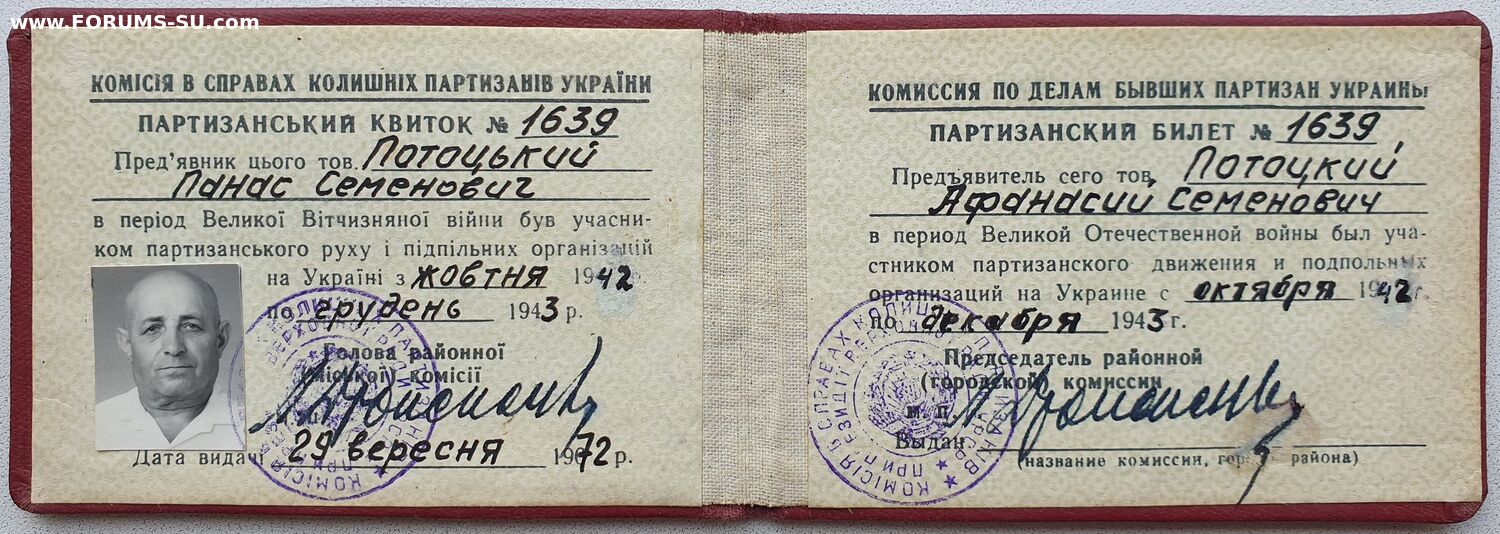 www.FORUMS-SU.com
КОМІСІЯ В СПРАВАХ КОЛИШНІХ ПАРТИЗАНІВ УКРАЇНИ
ПАРТИЗАНСЬКИЙ КВИТОК № 1639
Пред'явник цього тов. Потоцький
Панас Семенович
в період Великої Вітчизняної війни був учасни-
ком партизанського руху і підпільних організацій
на Україні з жовтня 1942 р.
по грудень 1943 р.
Голова районної
(міської) комісії
Дата видачі 29 вересня 1972 р.
КОМИССИЯ ПО ДЕЛАМ БЫВШИХ ПАРТИЗАН УКРАИНЫ
ПАРТИЗАНСКИЙ БИЛЕТ № 1639
Предъявитель сего тов. Потоцкий
Афанасий Семенович
в период Великой Отечественной войны был уча-
стником партизанского движения и подпольных
организаций на Украине с октября 1942 г.
по декабря 1943 г.
Председатель районной
(городской) комиссии
М. П.
Выдан
(название комиссии, города, района)